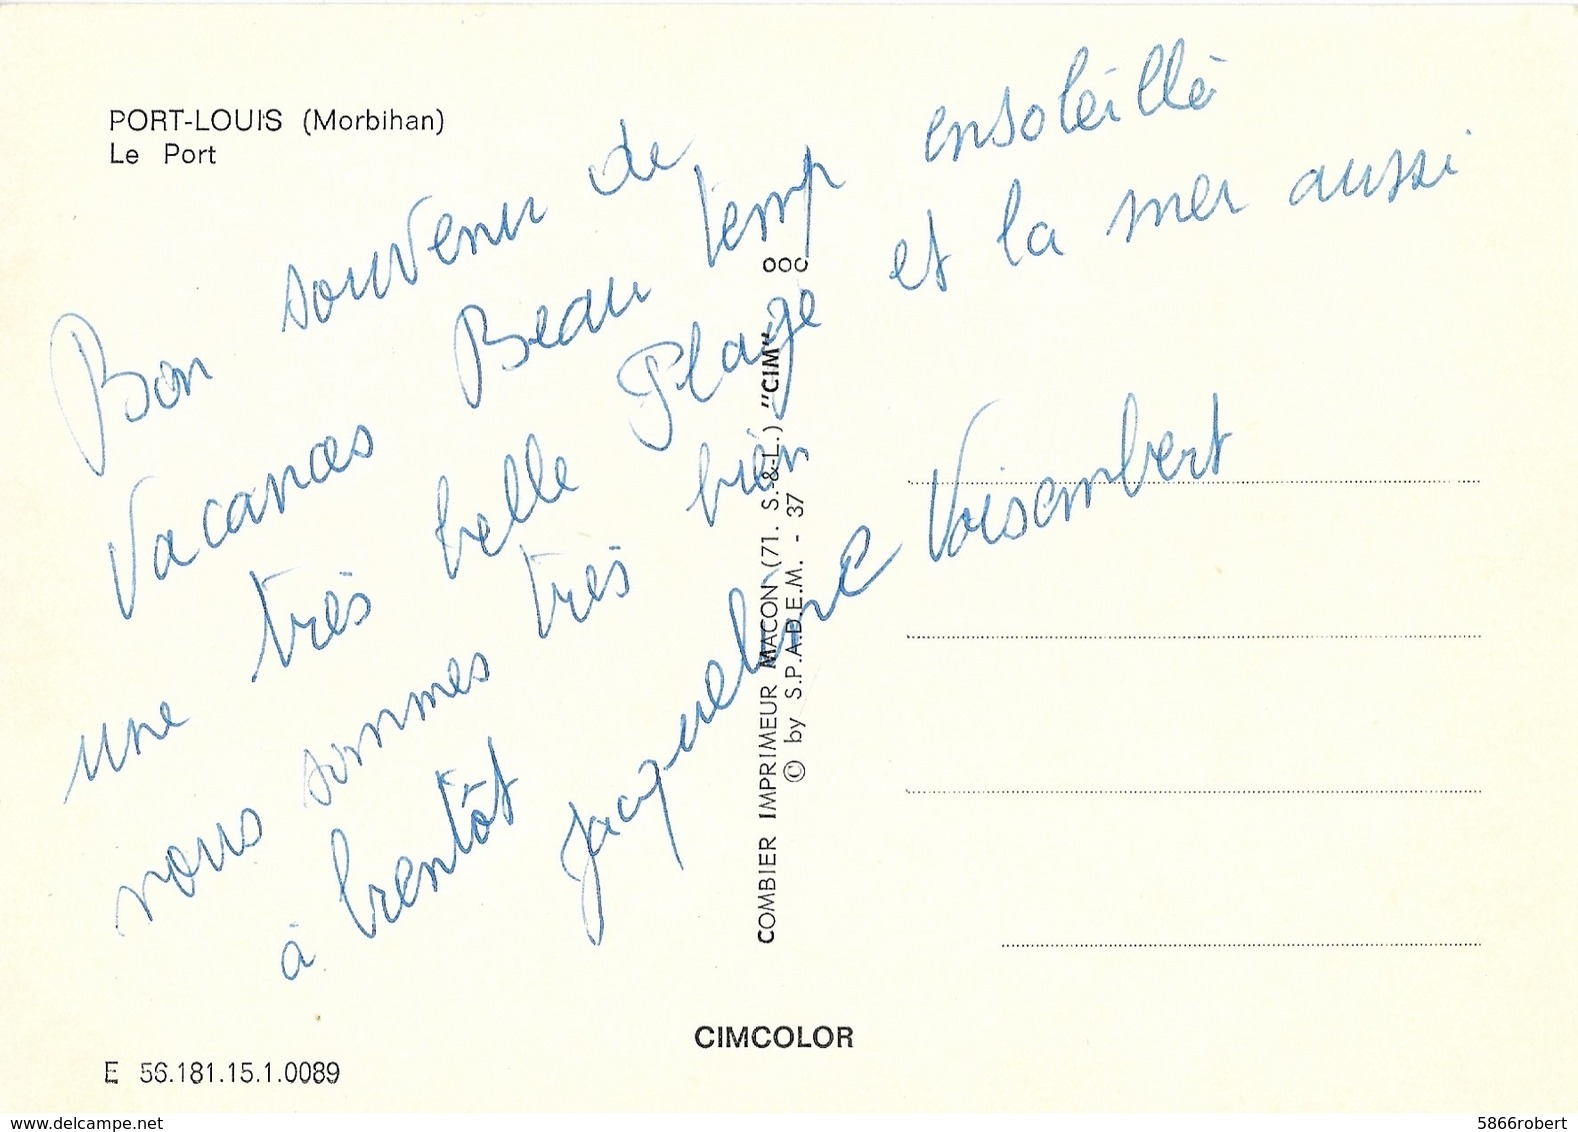 PORT-LOUIS (Morbihan)
Le Port
Bon souvenir de
Vacances Beau temp ensoleillé
une très belle Plage et la mer aussi
nous sommes très bien
à bientôt Jacqueline Voisembert
COMBIER IMPRIMEUR MACON (71. S.-&-L.) "CIM"
© by S.P.A.D.E.M. - 37
CIMCOLOR
E 56.181.15.1.0089
www.delcampe.net
5866robert